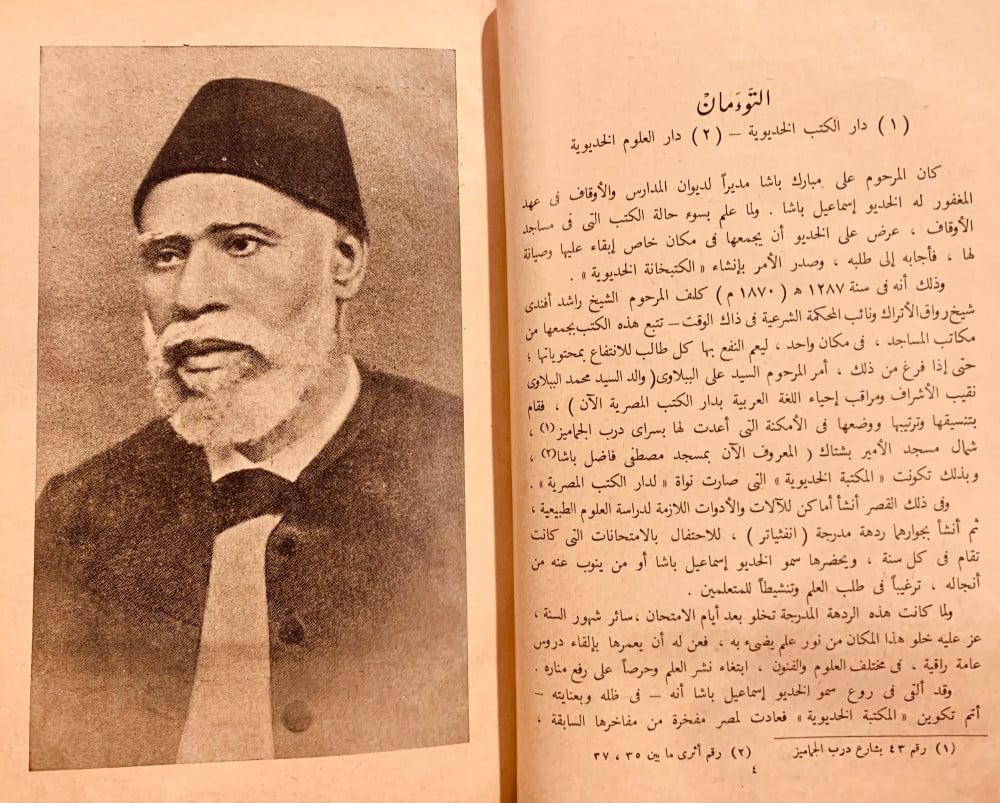 التوءمان
(١) دار الكتب الخديوية — (٢) دار العلوم الخديوية
كان المرحوم على مبارك باشا مديراً لديوان المدارس والأوقاف فى عهد
المغفور له الخديو إسماعيل باشا . ولما علم بسوء حالة الكتب التى فى مساجد
الأوقاف ، عرض على الخديو أن يجمعها فى مكان خاص إبقاء عليها وصيانة
لها ، فأجابه إلى طلبه ، وصدر الأمر بإنشاء « الكتبخانة الخديوية » .
وذلك أنه فى سنة ١٢٨٧ ھ ( ١٨٧٠ م ) كلف المرحوم الشيخ راشد أفندى
شيخ رواق الأتراك ونائب المحكمة الشرعية فى ذاك الوقت — تتبع هذه الكتب بجمعها من
مكاتب المساجد ، فى مكان واحد ، ليعم النفع بها كل طالب للانتفاع بمحتوياتها ؛
حتى إذا فرغ من ذلك ، أمر المرحوم السيد على الببلاوى ( والد السيد محمد الببلاوى
نقيب الأشراف ومراقب إحياء اللغة العربية بدار الكتب المصرية الآن ) ، فقام
بتنسيقها وترتيبها ووضعها فى الأمكنة التى أعدت لها بسراى درب الجماميز (١) ،
شمال مسجد الأمير بشتاك ( المعروف الآن بمسجد مصطفى فاضل باشا (٢) ،
وبذلك تكونت « المكتبة الخديوية » التى صارت نواة « لدار الكتب المصرية » .
وفى ذلك القصر أنشأ أماكن للآلات والأدوات اللازمة لدراسة العلوم الطبيعية ،
ثم أنشأ بجوارهما ردهة مدرجة ( انفثياتر ) ، للاحتفال بالامتحانات التى كانت
تقام فى كل سنة ، ويحضرها سمو الخديو إسماعيل باشا أو من ينوب عنه من
أنجاله ، ترغيباً فى طلب العلم وتنشيطاً للمتعلمين .
ولما كانت هذه الردهة المدرجة تخلو بعد أيام الامتحان ، سائر شهور السنة ،
عز عليه خلو هذا المكان من نور علم يضىء به ، فعن له أن يعمرها بإلقاء دروس
عامة راقية ، فى مختلف العلوم والفنون ، ابتغاء نشر العلم وحرصاً على رفع مناره .
وقد ألقى فى روع سمو الخديو إسماعيل باشا أنه — فى ظله وبعنايته —
أتم تكوين « المكتبة الخديوية » فعادت لمصر مفخرة من مفاخرها السابقة ،
(١) رقم ٤٣ بشارع درب الجماميز (٢) رقم أثرى ما بين ٣٥ ، ٣٧
٤